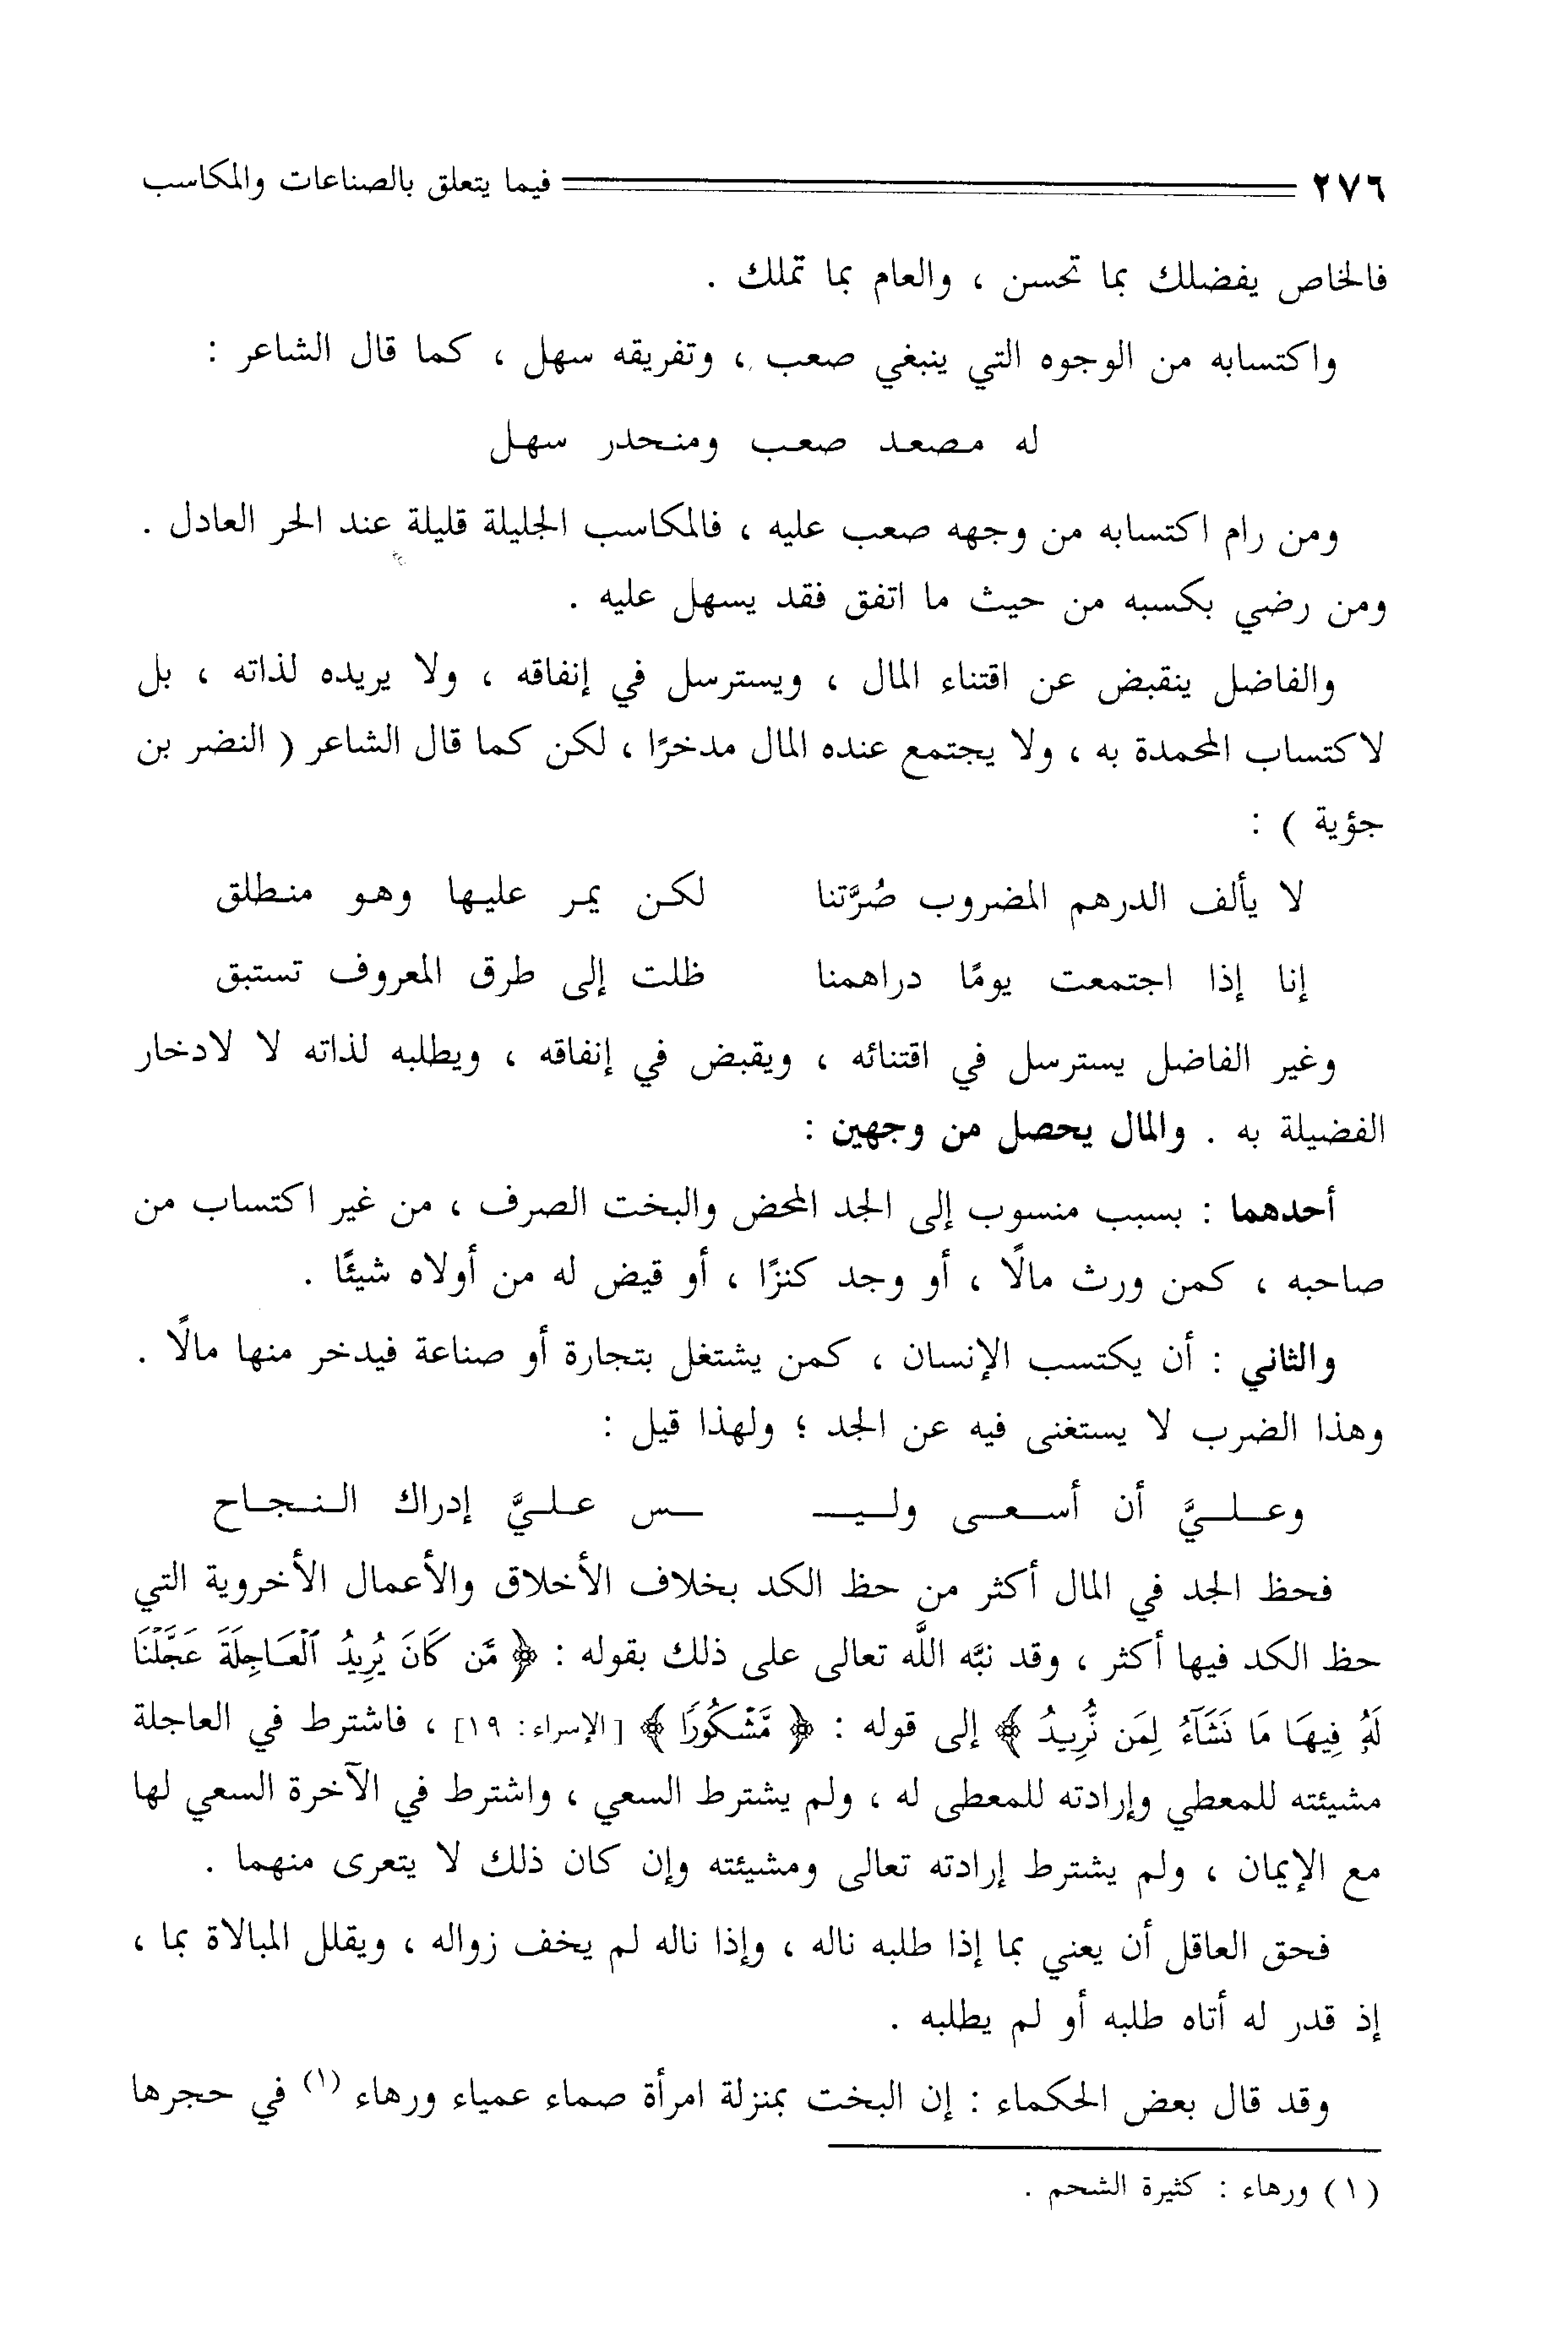 ٢٧٦ فيما يتعلق بالصناعات والمكاسب
فالخاص يفضلك بما تحسن ، والعام بما تملك .
واكتسابه من الوجوه التي ينبغي صعب ، وتفريقه سهل ، كما قال الشاعر :
له مصعد صعب ومنحدر سهل
ومن رام اكتسابه من وجهه صعب عليه ، فالمكاسب الجليلة قليلة عند الحر العادل .
ومن رضي بكسبه من حيث ما اتفق فقد يسهل عليه .
والفاضل ينقبض عن اقتناء المال ، ويسترسل في إنفاقه ، ولا يريده لذاته ، بل
لاكتساب المحمدة به ، ولا يجتمع عنده المال مدخرًا ، لكن كما قال الشاعر ( النضر بن
جؤية ) :
لا يألف الدرهم المضروب صُرَّتنا لكن يمر عليها وهو منطلق
إنا إذا اجتمعت يومًا دراهمنا ظلت إلى طرق المعروف تستبق
وغير الفاضل يسترسل في اقتنائه ، ويقبض في إنفاقه ، ويطلبه لذاته لا لادخار
الفضيلة به . والمال يحصل من وجهين :
أحدهما : بسبب منسوب إلى الجد المحض والبخت الصرف ، من غير اكتساب من
صاحبه ، كمن ورث مالًا ، أو وجد كنزًا ، أو قيض له من أولاه شيئًا .
والثاني : أن يكتسب الإنسان ، كمن يشتغل بتجارة أو صناعة فيدخر منها مالًا .
وهذا الضرب لا يستغنى فيه عن الجد ؛ ولهذا قيل :
وعـلـيَّ أن أسـعـى ولـيـــ ــس عـلـيَّ إدراك الـنـجـاح
فحظ الجد في المال أكثر من حظ الكد بخلاف الأخلاق والأعمال الأخروية التي
حظ الكد فيها أكثر ، وقد نبَّه اللَّه تعالى على ذلك بقوله : ﴿ مَّن كَانَ يُرِيدُ ٱلْعَاجِلَةَ عَجَّلْنَا
لَهُۥ فِيهَا مَا نَشَآءُ لِمَن نُّرِيدُ ﴾ إلى قوله : ﴿ مَّشْكُورًا ﴾ [ الإسراء: ١٩] ، فاشترط في العاجلة
مشيئته للمعطي وإرادته للمعطى له ، ولم يشترط السعي ، واشترط في الآخرة السعي لها
مع الإيمان ، ولم يشترط إرادته تعالى ومشيئته وإن كان ذلك لا يتعرى منهما .
فحق العاقل أن يعني بما إذا طلبه ناله ، وإذا ناله لم يخف زواله ، ويقلل المبالاة بما ،
إذ قدر له أتاه طلبه أو لم يطلبه .
وقد قال بعض الحكماء : إن البخت بمنزلة امرأة صماء عمياء ورهاء (١) في حجرها
(١) ورهاء : كثيرة الشحم .